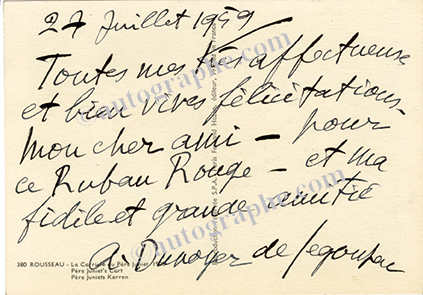 27 Juillet 1959
Toutes mes très affectueuse
et bien vives félicitations -
mon cher ami - pour
ce Ruban Rouge - et ma
fidèle et grande amitié
A. Dunoyer de Segonzac
380 ROUSSEAU - La Carriole du Père Juniet
Père Juniet's Cart
Père Juniets Karren
©autographe.com
©autographe.com
©autographe.com